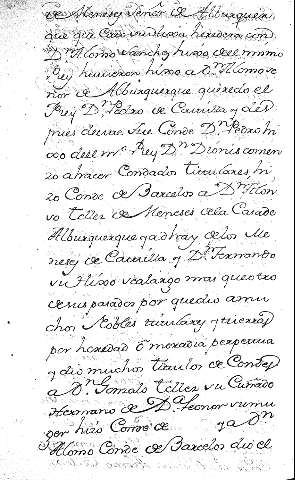 de Meneses Señor de Alburquer
que que Caso vuittosa heredera con
Dn. Alonso Sanchez hixo del mismo
Rey huvieron hixo a Dn. Alonso Se
ñor de Alburquerque que dio el
Rey Dn. Pedro de Castilla y des
pues de este fue Conde Dn. Pedro hi
xo del mo. Rey Dn. Dionis comen
zo a hacer Condados titulares, hi
zo Conde de Barcelos a Dn. Alon
so Tellez de Meneses de la Casa de
Alburquerque y a dhay de los Me
neses de Castilla y Dn. Fernando
su Hixo se alargo mas que otro
de sus pasados por que dio a mu
chos Nobles titulares y tierras
por heredad ô moradia perpetua
y dio muchos titulos de Condes
a Dn. Gonzalo Tellez su Cuñado
Hermano de Da. Leonor su mu
ger hizo Conde de y a Dn
Alonso Conde de Barcelos dio el